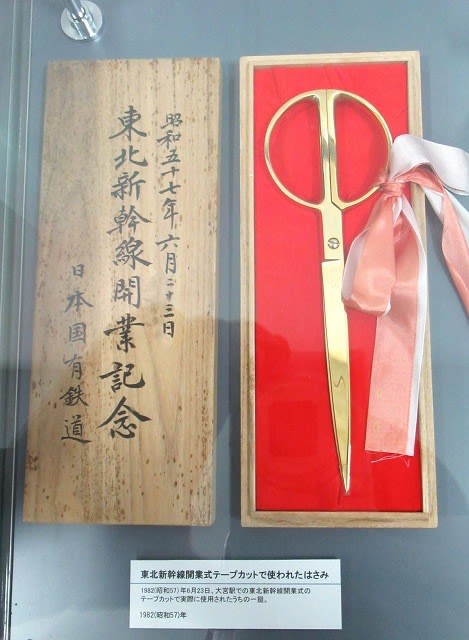 昭和五十七年六月二十三日
東北新幹線開業記念
日本国有鉄道
東北新幹線開業式テープカットで使われたはさみ
1982(昭和57)年6月23日、大宮駅での東北新幹線開業式の
テープカットで実際に使用されたうちの一挺。
1982(昭和57)年